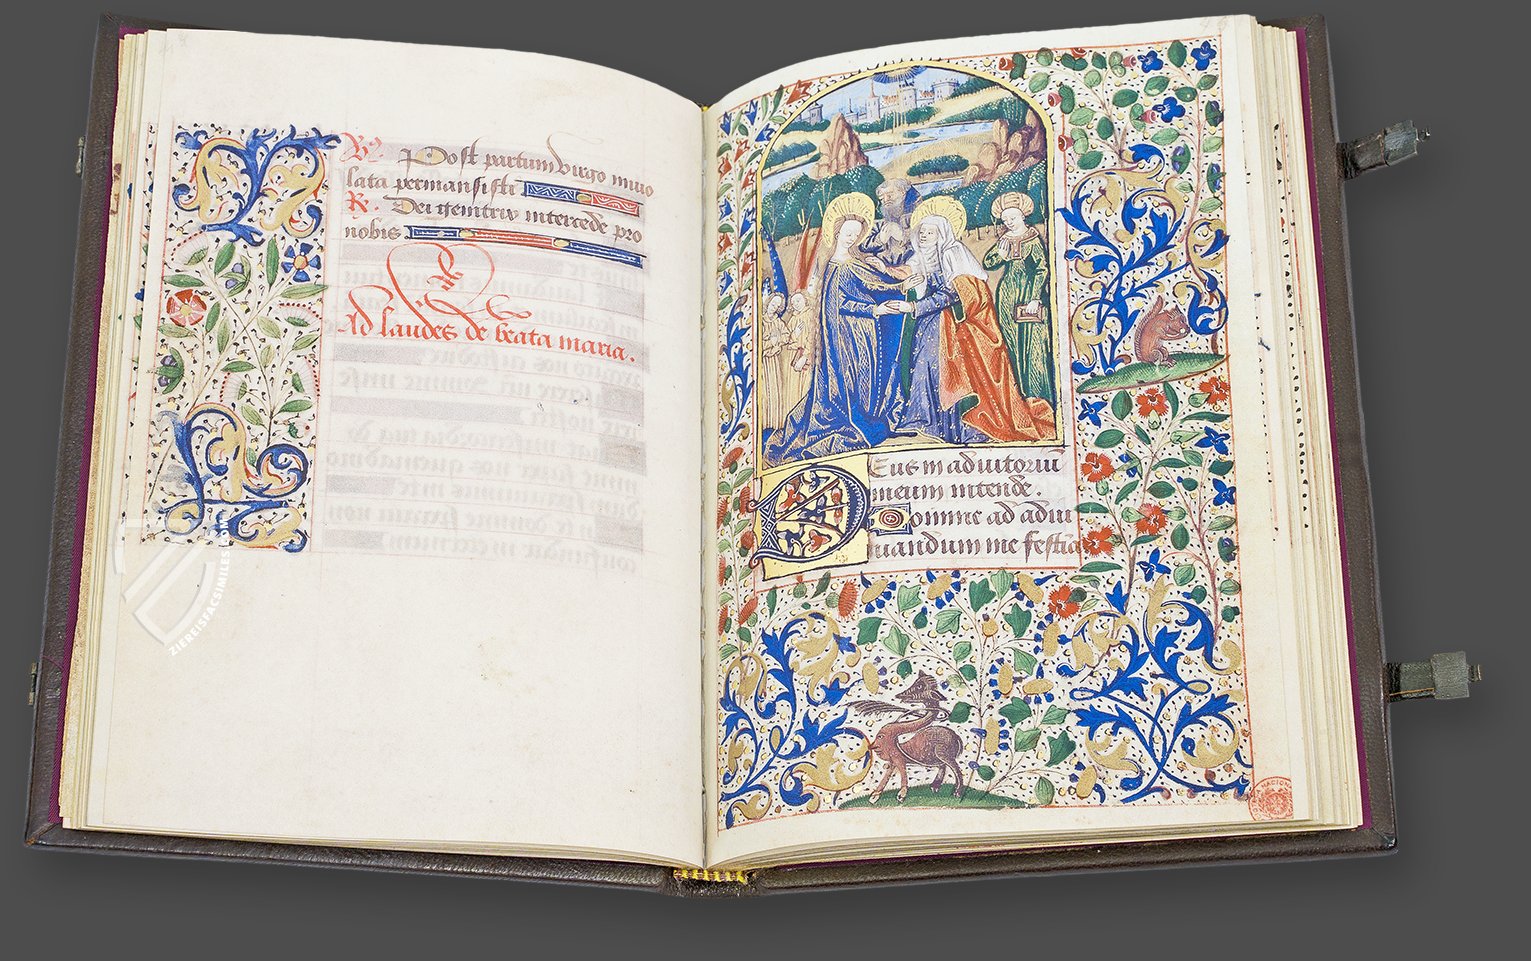 V. Post partum virgo invio
lata permansisti
R. Dei genitrix intercede pro
nobis
Ad laudes de beata maria.
Deus in adiutoriũ
meum intende.
Domine ad adiu
uandum me festina
ZIEREISFACSIMILES